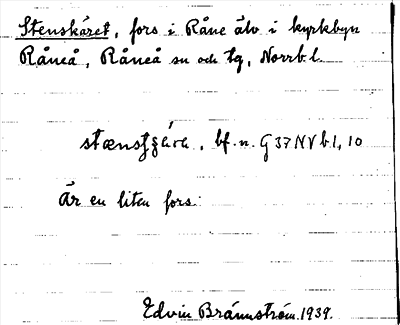 Stenskäret, fors i Råne älv i kyrkbyn
Råneå, Råneå sn och tg, Norrb. l.
bf. n. G 37 NV b 1, 10
Är en liten fors.
Edvin Brännström. 1939.